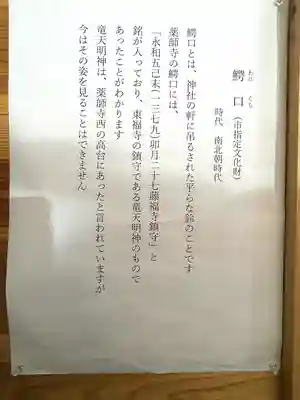 わに
ぐち
鰐口 (市指定文化財)
時代 南北朝時代
鰐口とは、神社の軒に吊るされた平らな鈴のことです
薬師寺の鰐口には、
「永和五己未(一三七九)卯月二十七藤福寺鎮守」と
銘が入っており、東福寺の鎮守である竜天明神のもので
あったことがわかります
竜天明神は、薬師寺西の高台にあったと言われていますが
今はその姿を見ることはできません